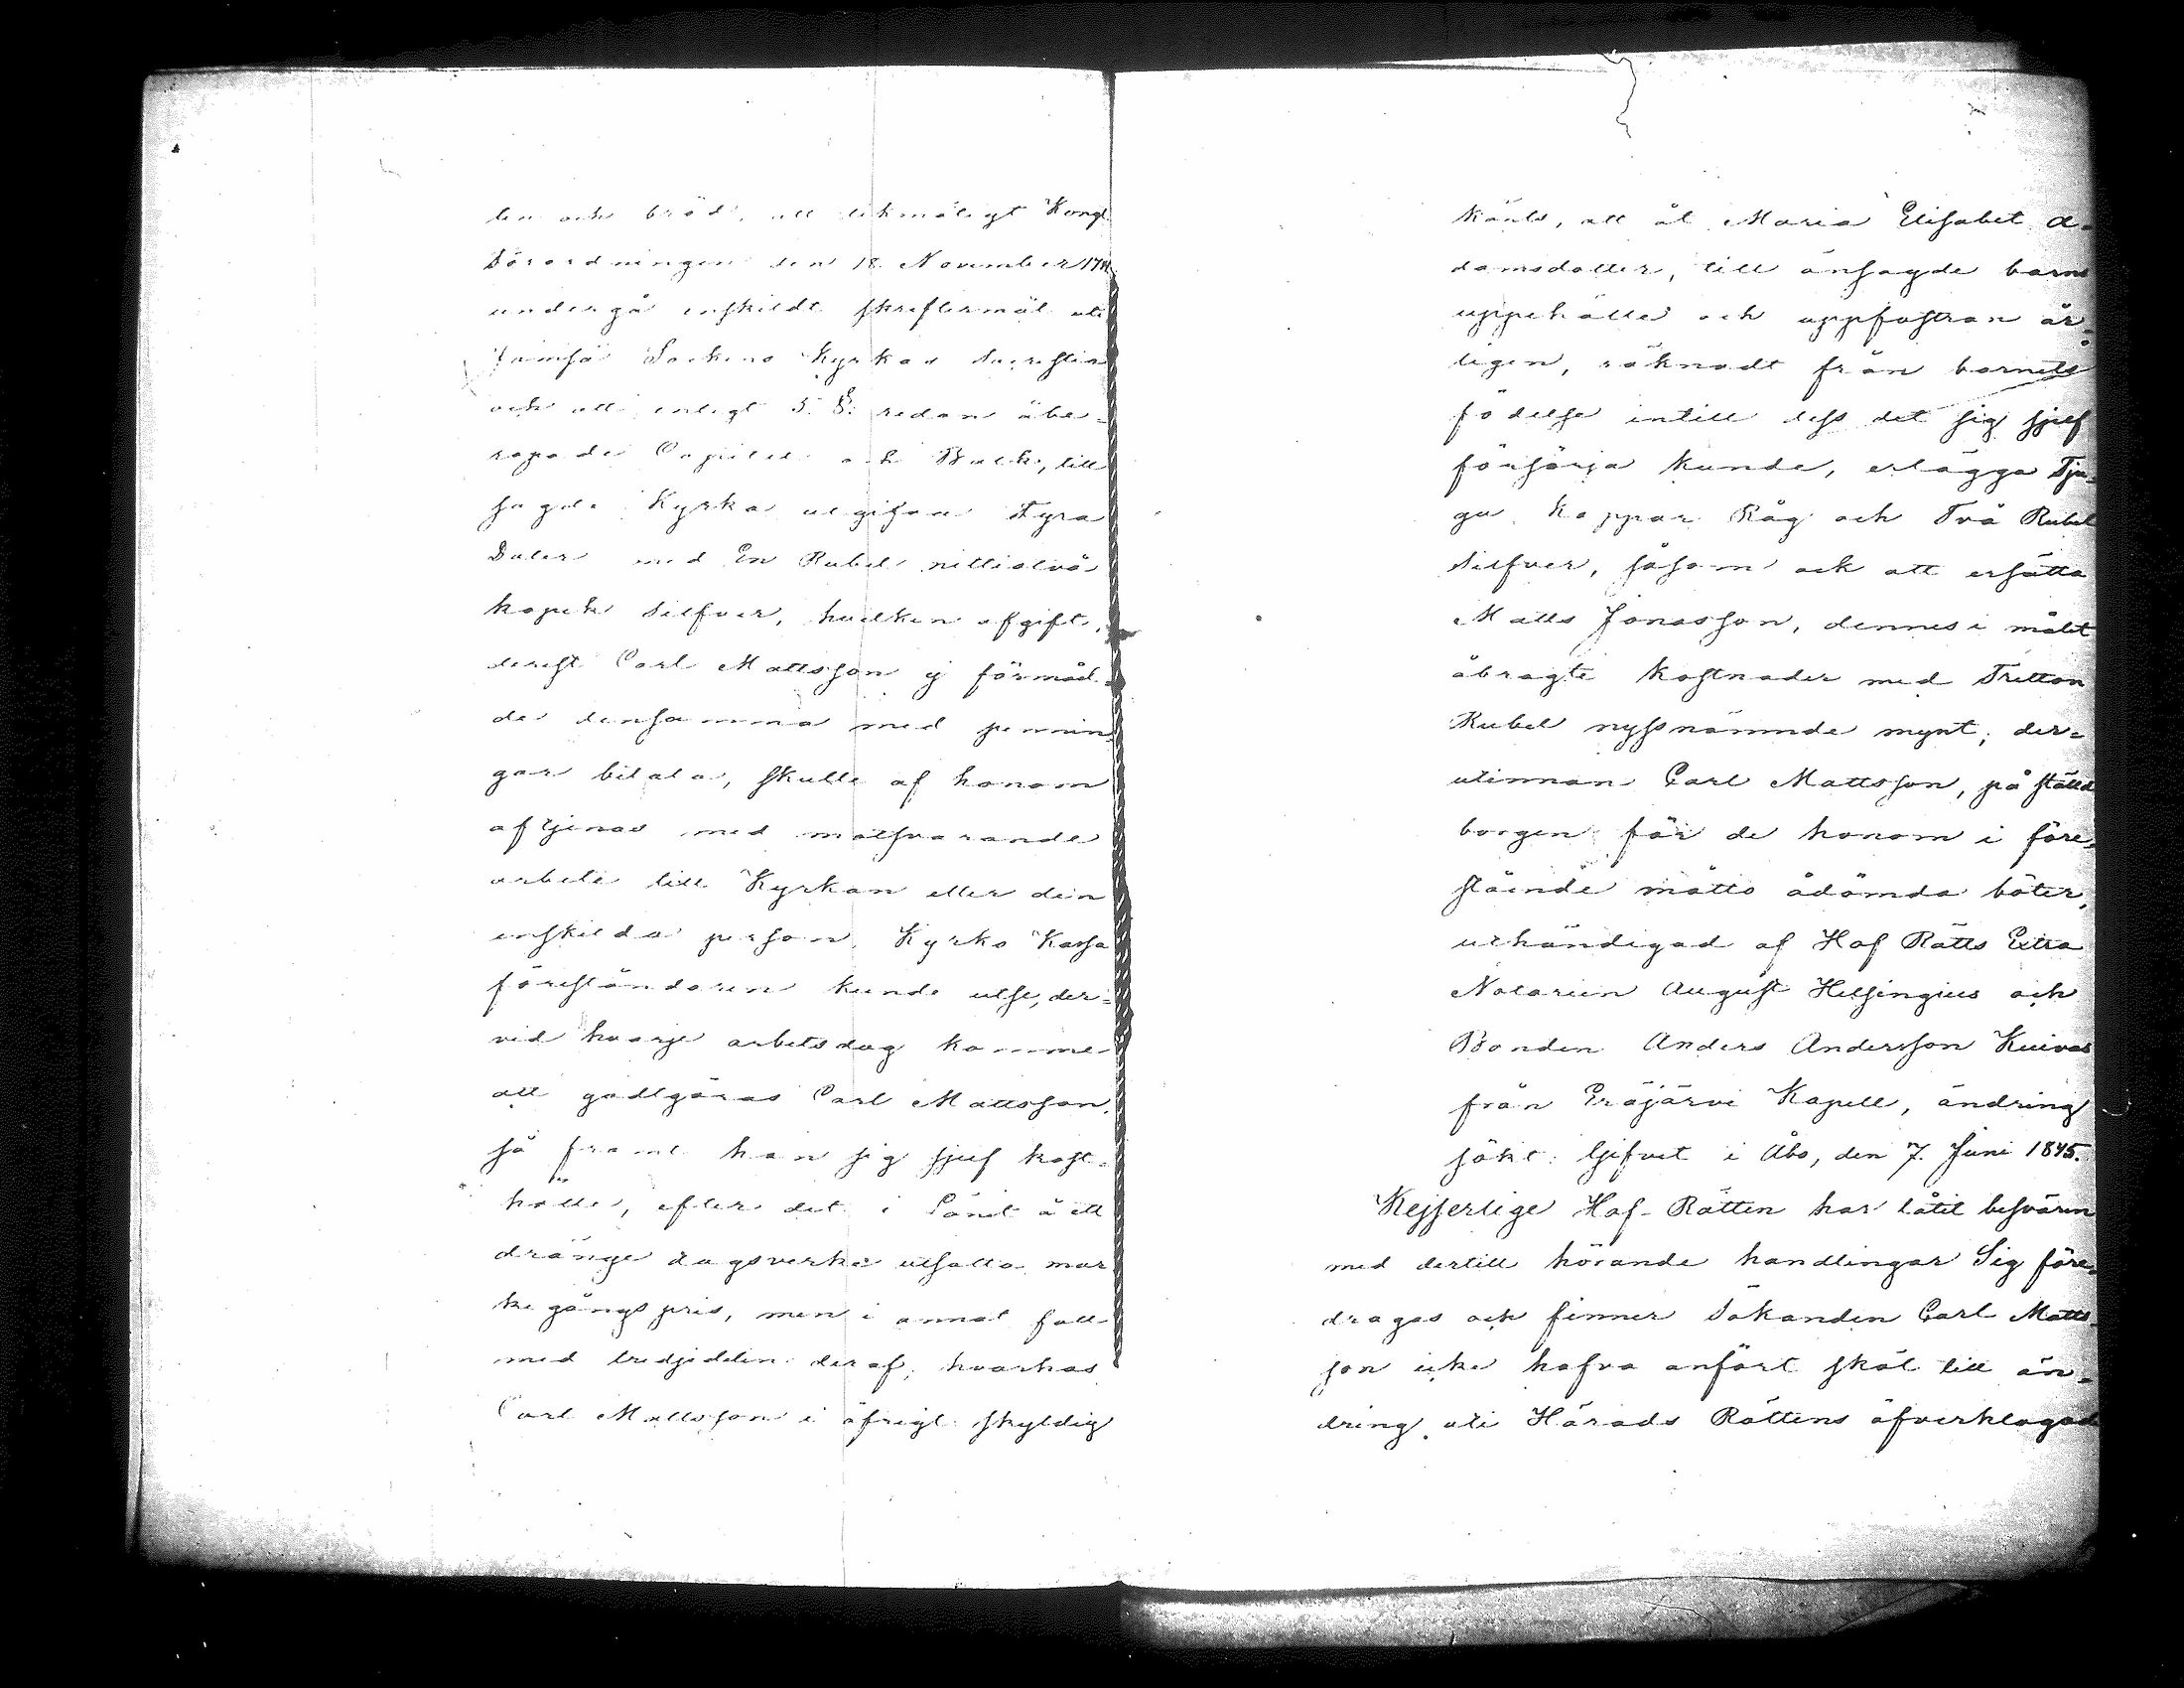 ten och bröd, att likmätigt Kongl.
Förordningen den 18 November 1741
undergå enskildt skriftermål uti
Jämsä Sockens Kyrkas Sacristia
och att enligt 5. §. redan åbe-
ropade Capitel och Balk, till
sagde Kyrka utgifva Fyra
Daler med En Rubel nittiotvå
kopek Silfver, hvilken afgift,
derest Carl Mattsson ej förmåd-
de densamma med pennin-
gar betala, skulle af honom
aftjenas med motsvarande
arbete till Kyrkan eller den
enskilda person, Kyrko Kassa
föreståndaren kunde utse, der-
vid hvarje arbetsdag komme
att godtgöras Carl Mattsson,
så framt han sig sjelf kost-
hölle, efter det i Länet å ett
dränge dagsverke utsatta mar-
kegångspris, men i annat fall
med tredjedelen deraf; hvarhos
Carl Mattsson i öfrigt skyldig
kändts, att åt Maria Elisabet A-
damsdotter, till änsagde barns
uppehälle och uppfostran år-
ligen, räknadt från barnets
födelse intill dess det sig sjelf
försörja kunde, erlägga Tju-
gu Kappar Råg och Två Rubel
Silfver, såsom ock att ersätta
Matts Jonasson, dennes i målet
åbragte kostnader med Tretton
Rubel nyssnämnde mynt; der-
utinnan Carl Mattsson, på ställd
borgen för de honom i före-
stående måtto ådömda böter,
urhändigad af Hof Rätts Extra
Notarien August Helsingius och
Bonden Anders Andersson Kuivas
från Eräjärvi Kapell, ändring
sökt: Gifvet i Åbo, den 7. Juni 1845.
Kejserlige Hof-Rätten har låtit besvären
med dertill hörande handlingar Sig före-
dragas och finner Sökanden Carl Matts-
son icke hafva anfört skäl till än-
dring uti Härads Rättens öfverklagade